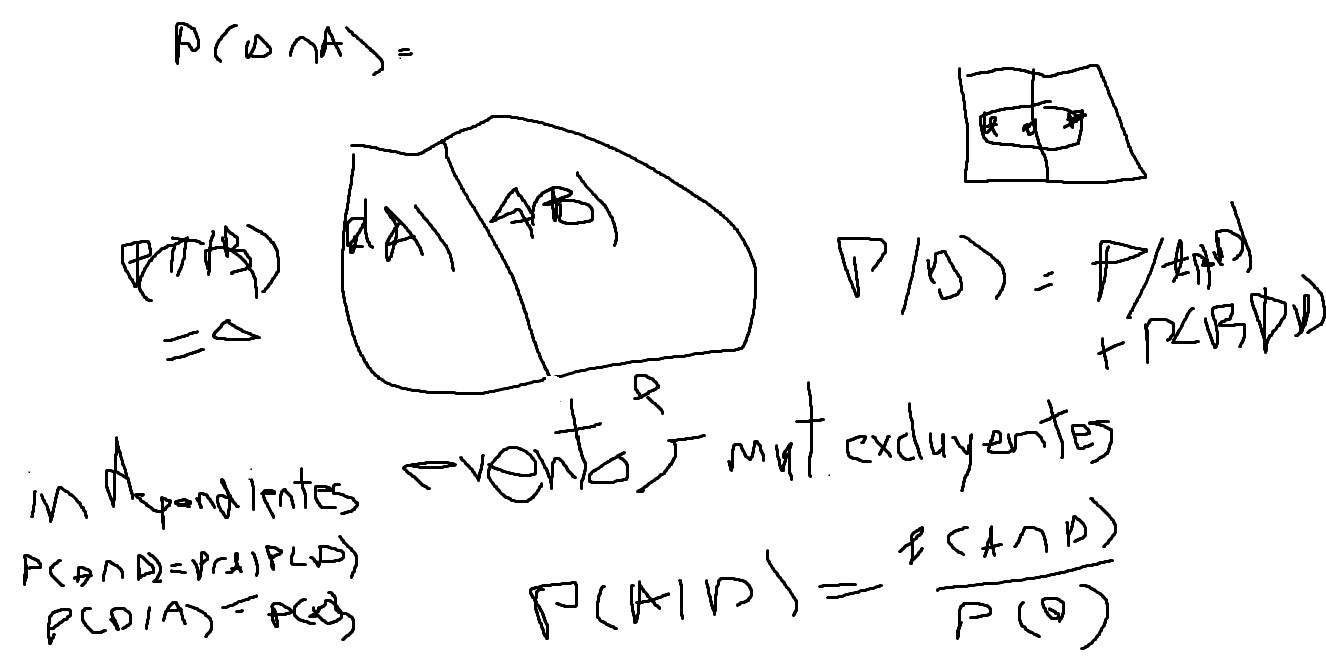 P(D∩A)=
A) (B)
= 0
P(D) = P(A∩D)
+ P(B∩D)
eventos mut excluyentes
independientes
P(A∩D)=P(A)P(D)
P(D|A) = P(D)
P(A|D) = P(A∩D)
P(D)